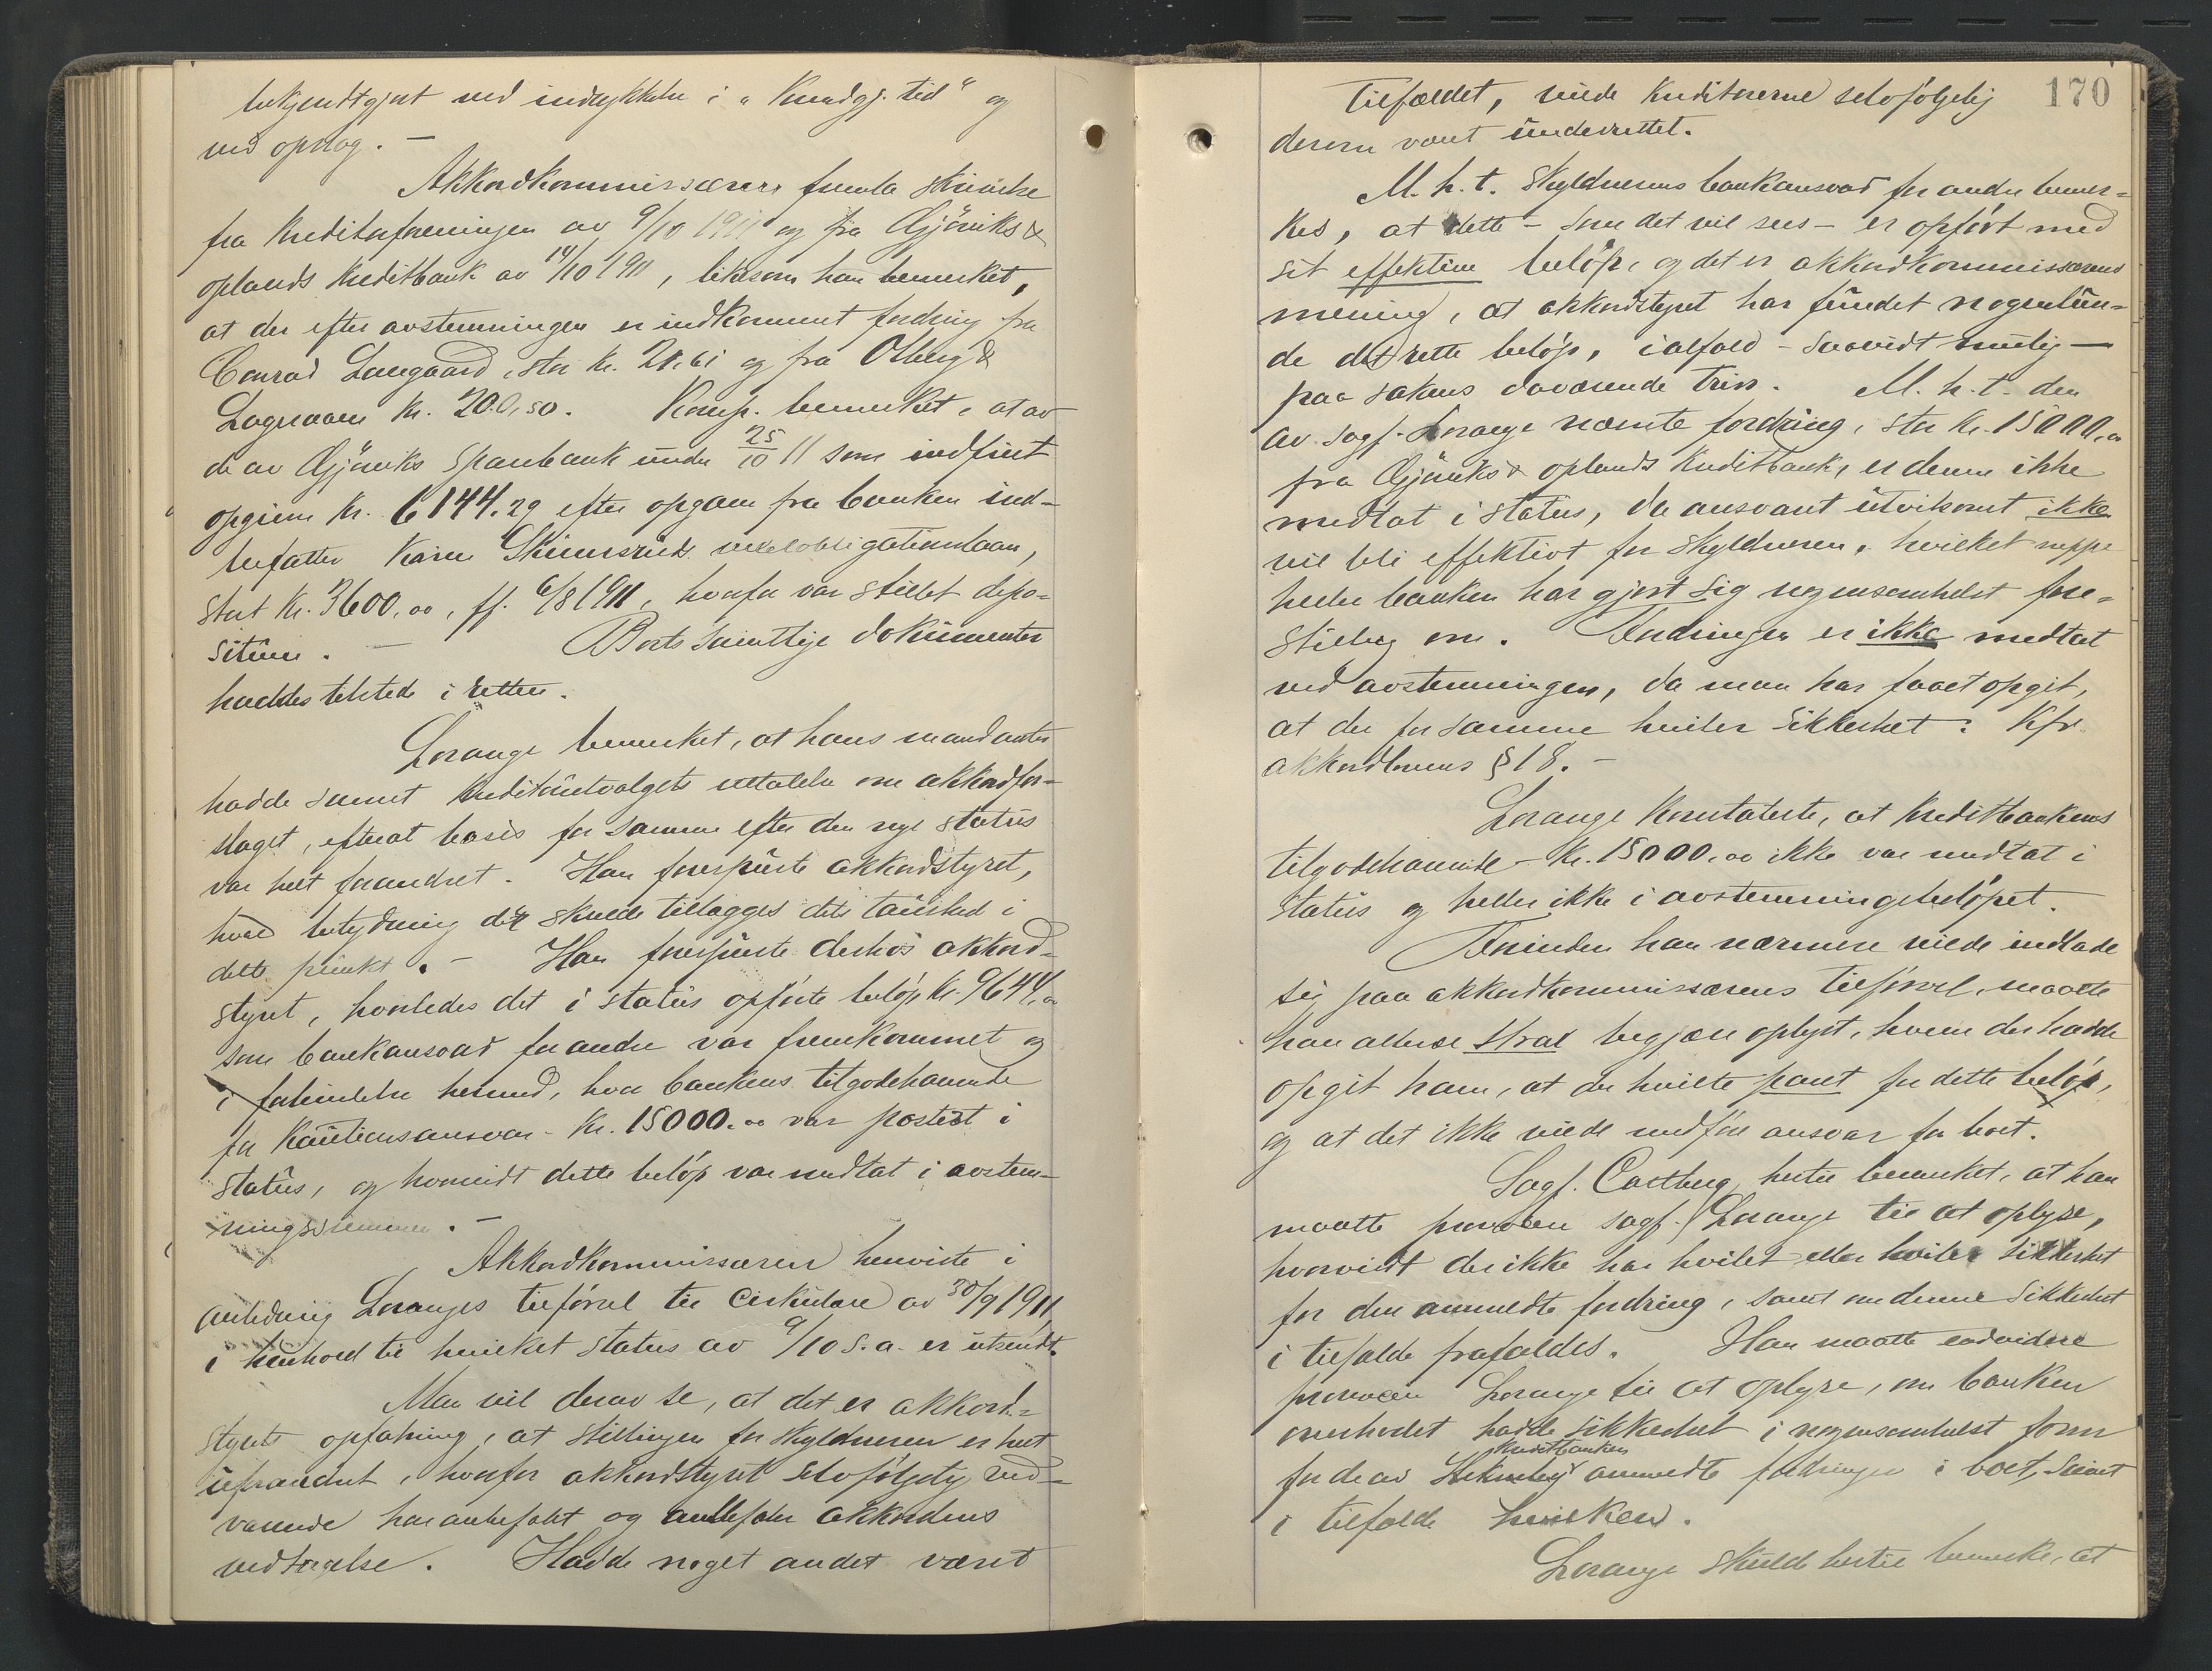 bekjendtgjort ved indrykkelse i "Kundgj. tid" og
ved opslag. —
Akkordkommissæren fremla skrivelse
fra Kreditorforeningen av 9/10 1911 og fra Gjøviks &
oplands Kreditbank av 14/10 1911, likesom han bemerket,
at der efter avstemningen er indkommet fordring fra
Conrad Langaard, stor kr. 21.61 og fra Osberg &
Lagmaaen kr. 200,50. Komp. bemerket, at av
de av Gjøviks Sparebank under 25/10 11 som indfriet
opgivne kr. 6144.29 efter opgave fra banken ind-
befatter Karen Skinnerud vekselobligationslaan,
stort kr. 3600,00, ff. 6/8 1911, hvorfor var stillet depo-
situm. — Boets samtlige dokumenter
haddes tilstede i retten.
Lorange bemerket, at hans mandanter
hadde savnet kreditorutvalgets uttalelse om akkordfor-
slaget, efterat basis for samme efter den nye status
var helt forandret. Han forespurte akkordstyret,
hvad betydning der skulde tillægges dets taushed i
dette punkt. — Han forespurte derhos akkord-
styret, hvorledes det i status opførte beløp kr. 9644,00
som bankansvar for andre var fremkommet og
i forbindelse hermed, hvor bankens tilgodehavende
for kautionsansvar - kr. 15000.00 var postert i
status, og hvorvidt dette beløp var medtat i avstem-
ningssummen. —
Akkordkommissæren henviste i
anledning Loranges tilførsel til cirkulære av 30/9 1911,
i henhold til hvilket status av 9/10 s.a. er utsendt.
Man vil derav se, at det er akkord-
styrets opfatning, at stillingen for skyldneren er helt
uforandret, hvorfor akkordstyret selvfølgelig ved-
varende har anbefalt og anbefaler akkordens
vedtagelse. Hadde noget andet været
170
tilfældet, vilde kreditorerne selvfølgelig
derom været underrettet.
M. h. t. skyldnerens bankansvar for andre bemer-
kes, at dette - som det vil sees - er opført med
sit effektive beløp, og det er akkordkommissærens
mening, at akkordstyret har fundet nogenlun-
de det rette beløp, ialfald - saavidt mulig —
paa sakens daværende trin. M. h. t. den
av sagf. Lorange nævnte fordring, stor kr. 15000,00
fra Gjøviks & oplands Kreditbank, er denne ikke
medtat i status, da ansvaret utvilsomt ikke
vil bli effektivt for skyldneren, hvilket neppe
heller banken har gjort sig nogensomhelst fore-
stilling om. Fordringen er ikke medtat
ved avstemningen, da man har faaet opgit,
at der for samme hviler sikkerhet: Kfr.
akkordlovens § 18. —
Lorange konstaterte, at Kreditbankens
tilgodehavende - kr. 15000,00 ikke var medtat i
status og heller ikke i avstemningsbeløpet.
Forinden han nærmere vilde indlade
sig paa akkordkommissærens tilførsel, maatte
han allerede strax begjære oplyst, hvem der hadde
opgit ham, at der hvilte pant for dette beløp,
og at det ikke vilde medføre ansvar for boet.
Sagf. Castberg hertil bemerket, at han
maatte provosere sagf. Lorange til at oplyse,
hvorvidt der ikke har hvilet eller hviler sikkerhet
for den anmeldte fordring, samt om denne sikkerhet
i tilfælde frafaldes. Han maatte endvidere
provosere Lorange til at oplyse, om banken
overhodet hadde sikkerhet i nogensomhelst form
Kreditbanken
for de av anmeldte fordringer i boet, samt
i tilfælde hvilken.
Lorange skulde hertil bemerke, at